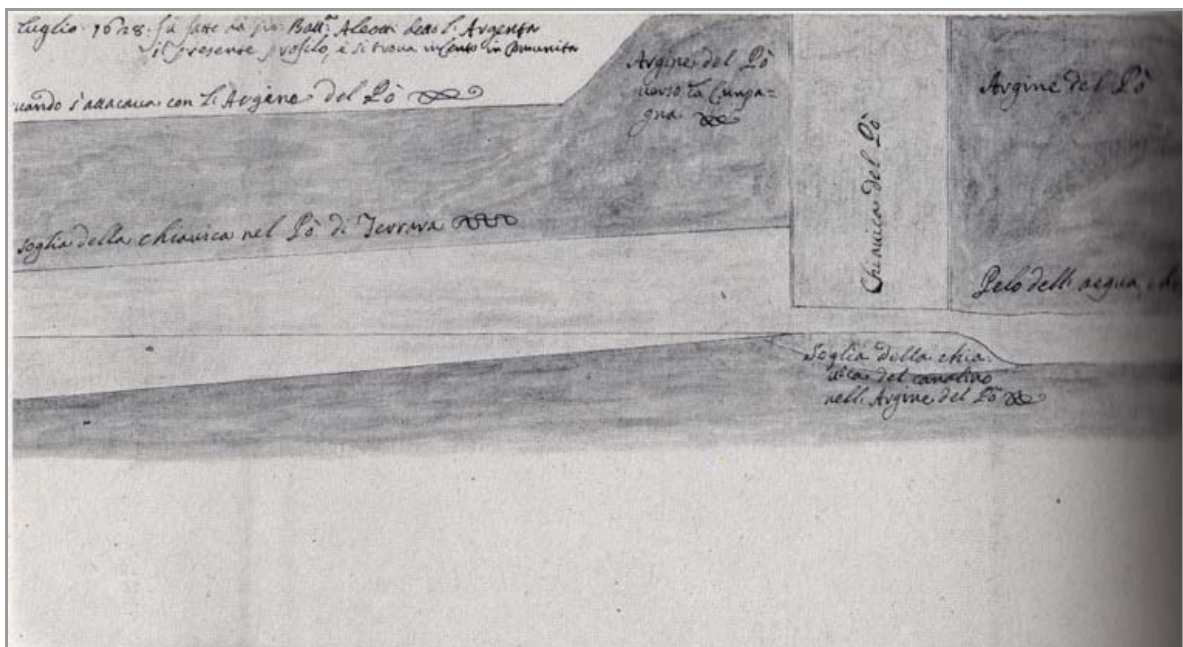 Luglio 1628. fu fatto da Gio: Batt.ᵃ Aleotti detto L'Argenta
il presente profilo, e si trova in Cento in Comunita
uando s'attacaua con L'Argine del Pò
Argine del Pò
uerso la Campa=
gna
Argine del Pò
Chiauica del Pò
soglia della chiauica nel Pò di Ferrara
Pelo dell' acqua, che
Soglia della chia:
uica del canalino
nell' Argine del Pò